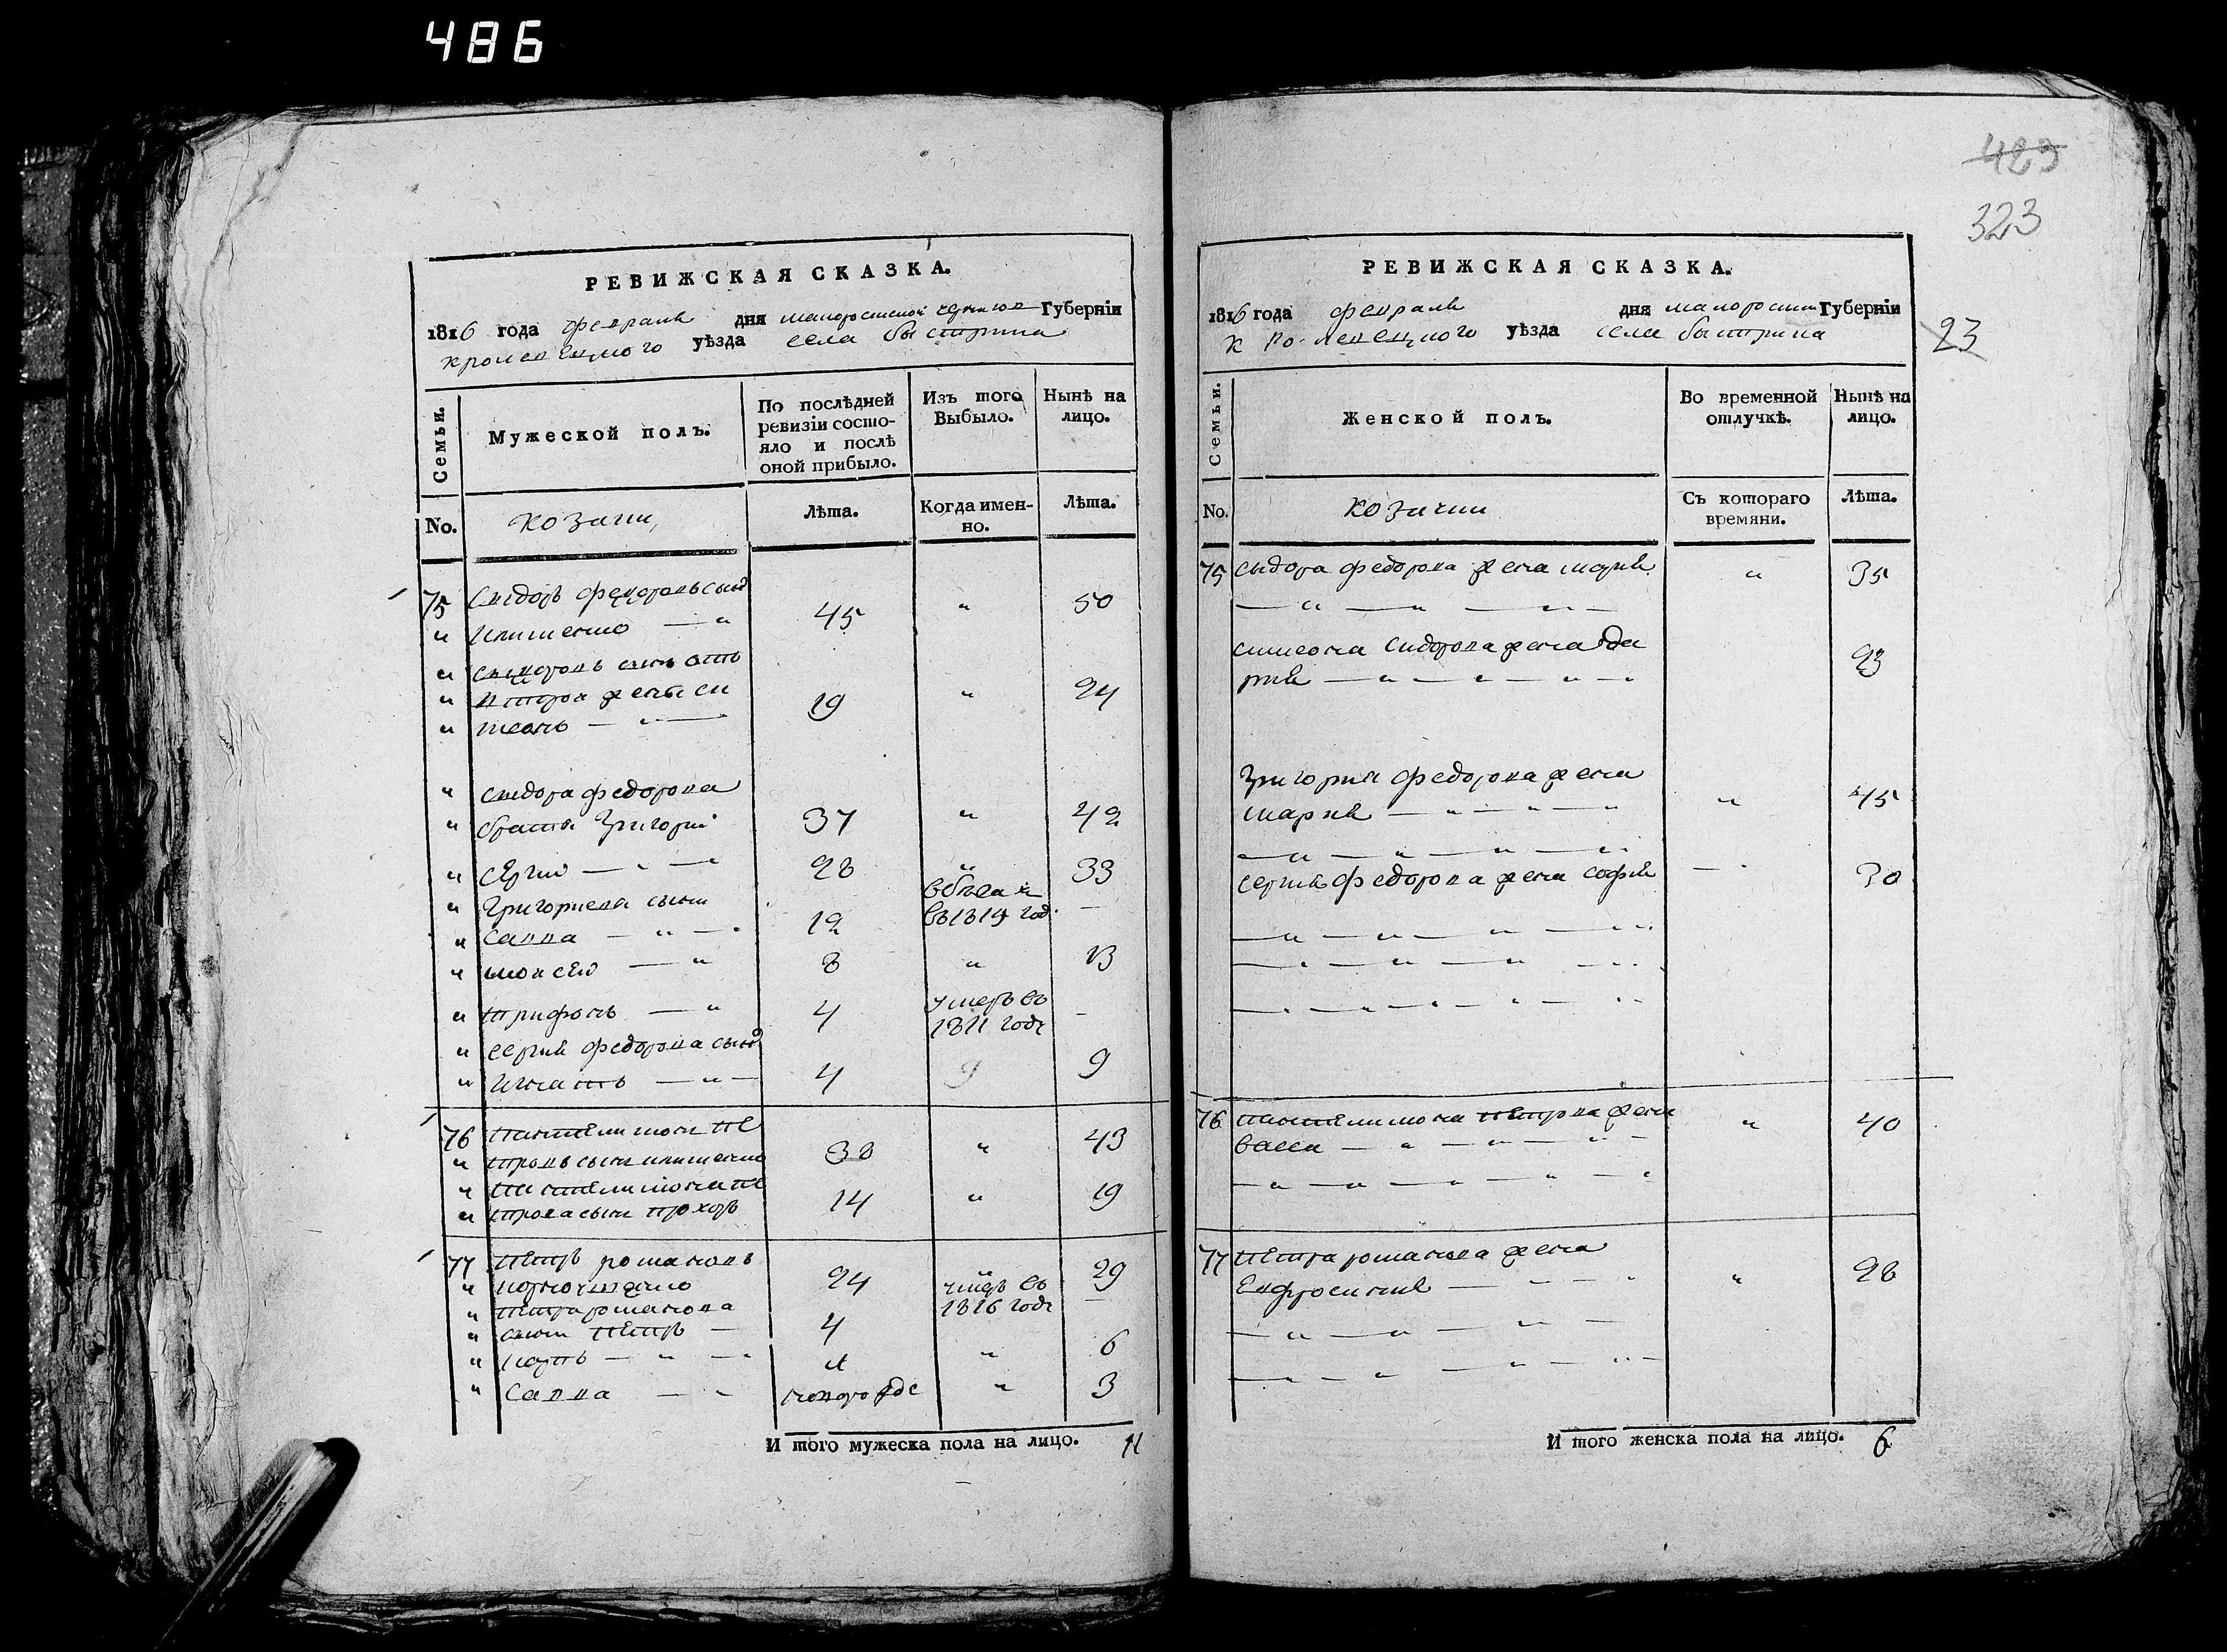 486
423
323
РЕВИЖСКАЯ СКАЗКА.
1816 года февраля дня малоросиской чернигов Губерніи
кролевецкого уѣзда села быстрика
Семьи. Мужеской полъ. По послѣдней ревизіи состо-яло и послѣ оной прибыло. Изъ того Выбыло. Нынѣ на лицо.
No. козаки, Лѣта. Когда имен-но. Лѣта.
75 Сидоръ федоровъ сынъ
" Клименко — " 45 " 50
" сидоровъ сынъ отъ
" второй жены си
" меонъ — " — 19 " 24
" сидора федорова
" братья григорій 37 " 42
" сергий — " — 28 " 33
" григориевы сыни
" Савва — " — 12 въ 1814 год. —
" моисей — " 8 " 13
" трифонъ — " 4 умеръ въ 1811 годе —
" сергия федорова сынъ
" Игнатъ — " — 4 9 9
76 пантелимон пе
" тровъ сынъ клименко 38 " 43
" пантелимона пе
" трова сынъ прохоръ 14 " 19
77 петръ романовъ
" 24 " 29
" петра романова
" сыни петръ — 4 умеръ въ 1816 годе —
" карпъ — " — " 1 " 6
" Савва — " новорожде " 3
И того мужеска пола на лицо. 11
РЕВИЖСКАЯ СКАЗКА.
1816 года февраля дня малоросиск Губерніи
кролевецкого уѣзда села быстрика
23
Семьи. Женской полъ. Во временной отлучкѣ. Нынѣ на лицо.
No. козачки Съ котораго времяни. Лѣта.
75 сидора федорова жена мария " 35
— " — " — " —
симеона сидорова жена да
рия — " — " — " — " 23
григория федорова жена
мария — " — " — " " 45
— " — " — " — "
сергия федорова жена софия — " 30
— " — " — " — "
— " — " — " — "
— " — " — " — "
76 пантелимона петрова жена
васса — " — " — " — " 40
— " — " — " — " — "
77 петра романова жена
Ефросиния — " — " " 28
— " — " — " —
— " — " — " — "
И того женска пола на лицо. 6